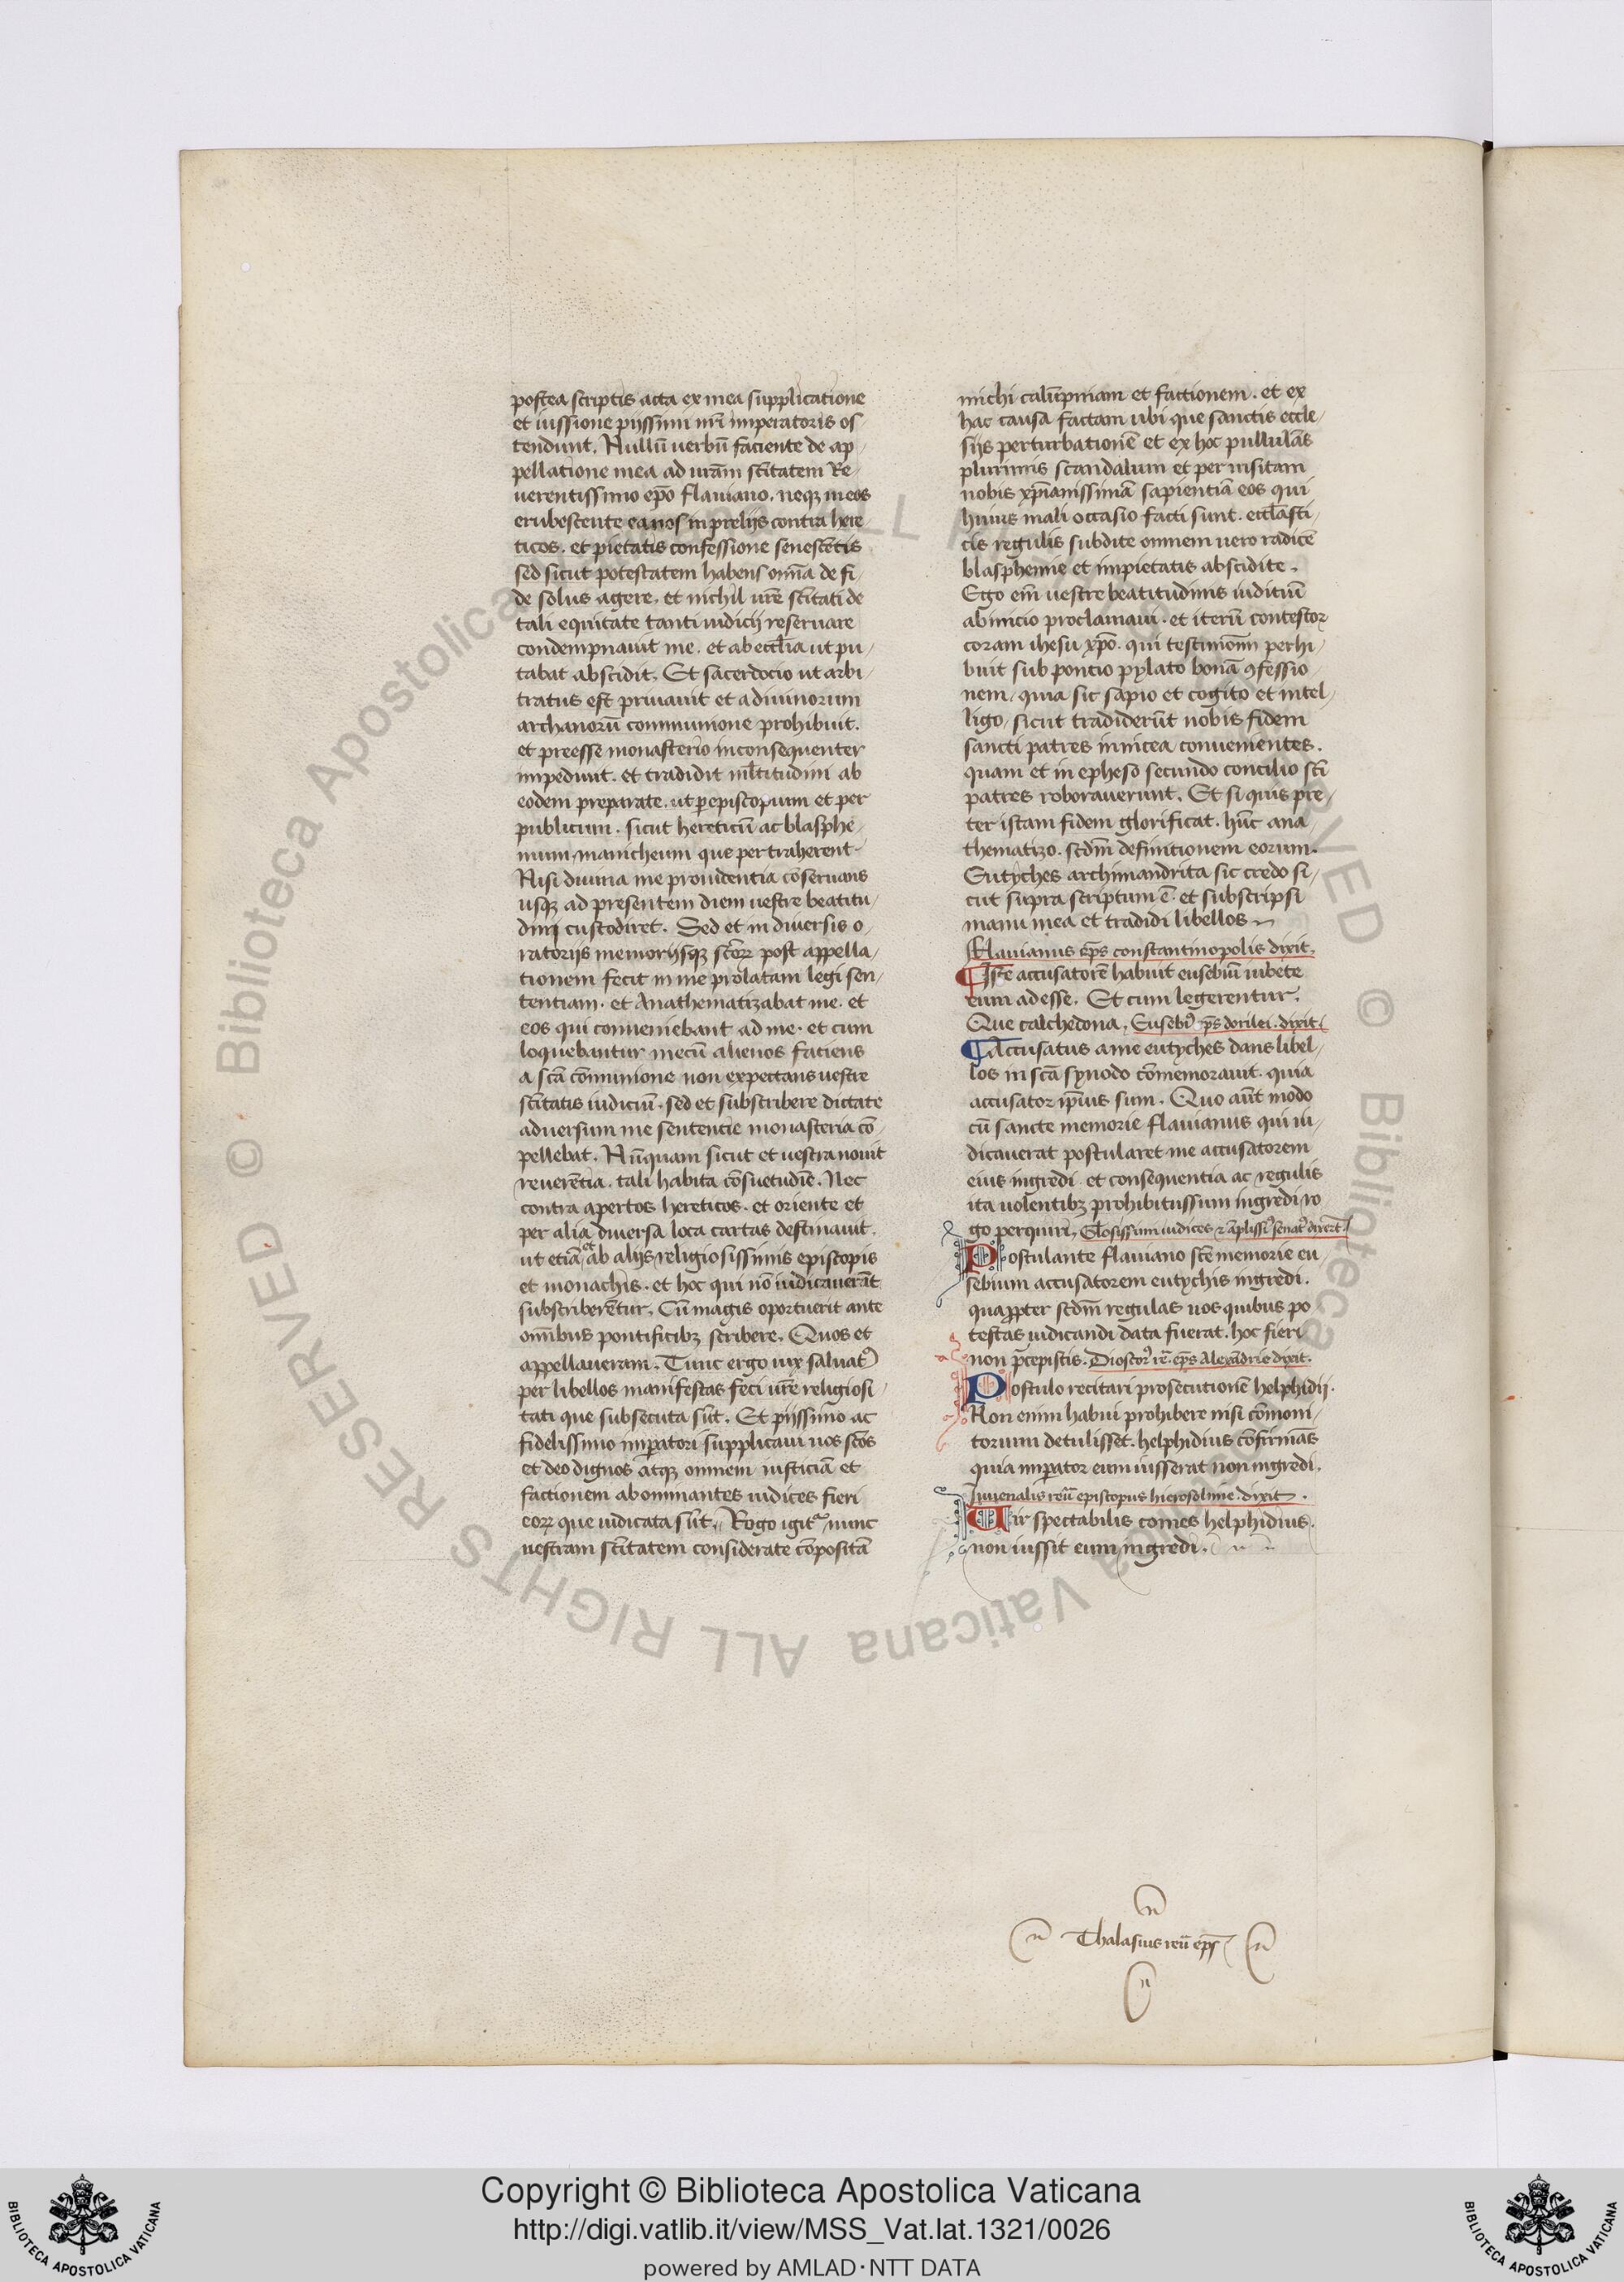 postea scriptis acta ex mea supplicatione
et iussione piissimi nr̄i imperatoris os
tendunt. Nullū uerbū faciente de ap-
pellatione mea ad ur̄am sc̄itatem Re-
uerentissimo ep̄o flauiano. neqꝫ meos
erubescente canos in prelijs contra here-
ticos. et pietatis confessione senescētis
sed sicut potestatem habens om̄ia de fi-
de solus agere. et nichil ur̄e sc̄itati de
tali equitate tanti iudicij reseruare
condempnauit me. et ab eccl̄ia ut pu-
tabat abscidit. Et sacerdocio ut arbi-
tratus est priuauit et a diuinorum
archanorū communione prohibuit.
et preesse monasterio inconsequenter
impediuit. et tradidit ml̄titudini ab
eodem preparate. ut ꝑ episcopium et per
publicum. sicut hereticū ac blasphe-
mum manicheum que pertraherent
Nisi diuina me prouidentia cōseruans
usqꝫ ad presentem diem uestre beatitu-
dini custodiret. Sed et in diuersis o-
ratorijs memorijsqꝫ sc̄orꝝ post appella-
tionem fecit in me prolatam legi sen-
tentiam. et Anathematizabat me. et
eos qui conueniebant ad me. et cum
loquebantur mecū alienos faciens
a sc̄a cōmunione non expectans uestre
sc̄itatis iudiciū. sed et subscribere dictate
aduersum me sententie monasteria cō-
pellebat. Nūquam sicut et uestra nouit
reuerētia. tali habita cōsuetudīe. Nec
contra apertos hereticos. et oriente et
per alia diuersa loca cartas destinauit.
ut etiā et ab alijs religiosissimis episcopis
et monachis. et hoc qui nō iudicauerāt
subscriberētur. Cū magis oportuerit ante
om̄ibus pontificibꝫ scribere. Quos et
appellaueram. Tunc ergo uix saluatꝰ
per libellos manifestas feci ur̄e religiosi-
tati que subsecuta sūt. Et pijssimo ac
fidelissimo imꝑatori supplicaui uos sc̄os
et deo dignos atqꝫ omnem iusticiā et
factionem abominantes iudices fieri
eorꝝ que iudicata sūt. Rogo igit᷑ nunc
uestram sc̄itatem considerate cōpositā
michi calūpniam et factionem. et ex
hac causa factam ubi que sanctis eccle-
sijs perturbationē et ex hoc pullulās
plurimis scandalum et per insitam
nobis xp̄ianissimā sapientiā eos qui
huius mali occasio facti sunt. eccl̄asti-
cis regulis subdite omnem uero radicē
blasphemie et impietatis abscidite.
Ego em̄ uestre beatitudinis iuditiū
ab inicio proclamaui. et iterū contestor
coram ihesu xp̄o. qui testimoniū perhi-
buit sub poncio pylato bonā ꝯfessio-
nem. quia sic sapio et cogito et intel-
ligo. sicut tradiderūt nobis fidem
sancti patres in nicea conuenientes.
quam et in epheso secundo concilio sc̄i
patres roborauerunt. Et si quis pre-
ter istam fidem glorificat. hūc ana-
thematizo. scd̄m definitionem eorum.
Eutyches archimandrita sic credo si-
cut supra scriptum ē. et subscripsi
manu mea et tradidi libellos
Flauianus ep̄s constantinopolis dixit.
Iste accusatorē habuit eusebiū iubete
eum adesse. Et cum legerentur.
Que calchedona. Eusebiꝰ ep̄s dorilei. dixit
Accusatus a me eutyches dans libel-
los in sc̄a synodo cōmemorauit. quia
accusator ip̄ius sum. Quo aūt modo
cū sancte memorie flauianus qui iu-
dicauerat postularet me accusatorem
eius ingredi et consequentia ac regulis
ita uolentibꝫ prohibitus sum ingredi ro-
go perquiri. Gl̄osissimi iudices ⁊ āplissiꝰ senatꝰ dixerūt.
Postulante flauiano sc̄e memorie eu-
sebium accusatorem eutychis ingredi.
quaꝓpter scd̄m regulas uos quibus po
testas iudicandi data fuerat. hoc fieri
non p̄cepistis. Dioscorꝰ re. ep̄s Alexādrie dixit.
Postulo recitari prosecutionē helphidij.
Non enim habui prohibere nisi cōmoni-
torium detulisset. helphidius cōfirmās
quia imꝑator eum iusserat non ingredi.
Iuuenalis reū episcopus hierosolime. dixit.
Uir spectabilis comes helphidius.
non iussit eum ingredi.
Thalasius reū ep̄s
Copyright © Biblioteca Apostolica Vaticana
http://digi.vatlib.it/view/MSS_Vat.lat.1321/0026
powered by AMLAD·NTT DATA
BIBLIOTECA APOSTOLICA VATICANA
BIBLIOTECA APOSTOLICA VATICANA
© Biblioteca Apostolica Vaticana ALL RIGHTS RESERVED